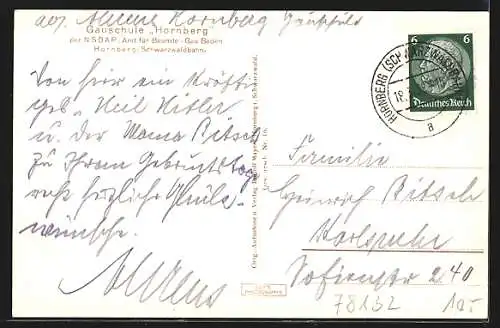 Ahrens Hornberg Gauschule
Gauschule „Hornberg"
der NSDAP. Amt für Beamte - Gau Baden
Hornberg Schwarzwaldbahn.
Von hier ein kräfti-
ges „Heil Hitler
u. der Mama Bitsch
zu Ihrem Geburtstag
recht herzliche Glück-
wünsche.
Ahrens
Orig.-Aufnahme u. Verlag
Hornberg i. Schwarzwald.
6 6
Deutsches Reich
HORNBERG (SCHWARZWALDB)
18.
a
Familie
Heinrich Bitsch
Karlsruhe
Sofienstr 240
78132